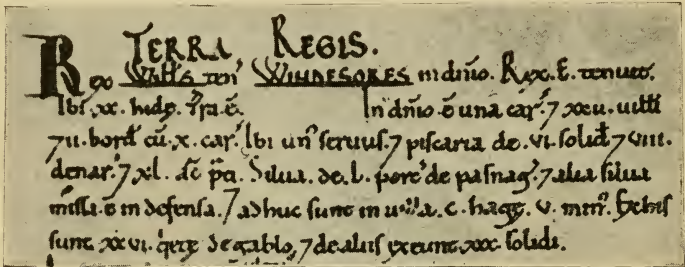 TERRA REGIS.
Rex Willꝰ ten̄ WINDESORES in dn̄io. Rex. E. tenuit.
Ibi .xx. hidę. Tr̄a. ē. In dn̄io ē una car̄. ⁊ xxii. uilli
⁊ ii. bord̄ cū .x. car̄. Ibi un̕ seruus. ⁊ piscaria de .vi. solid̄ ⁊ viii.
denar̄. ⁊ xl. ac̄ p̄ti. Silua. de .L. porc̕ de pasnag̕. ⁊ alia silua
missa. ē in defensa. ⁊ adhuc sunt in uilla .c. hagę. v. min̕. Ex his
sunt xxvi. q̇etę de gablo, ⁊ de aliis exeunt .xxx. solidi.